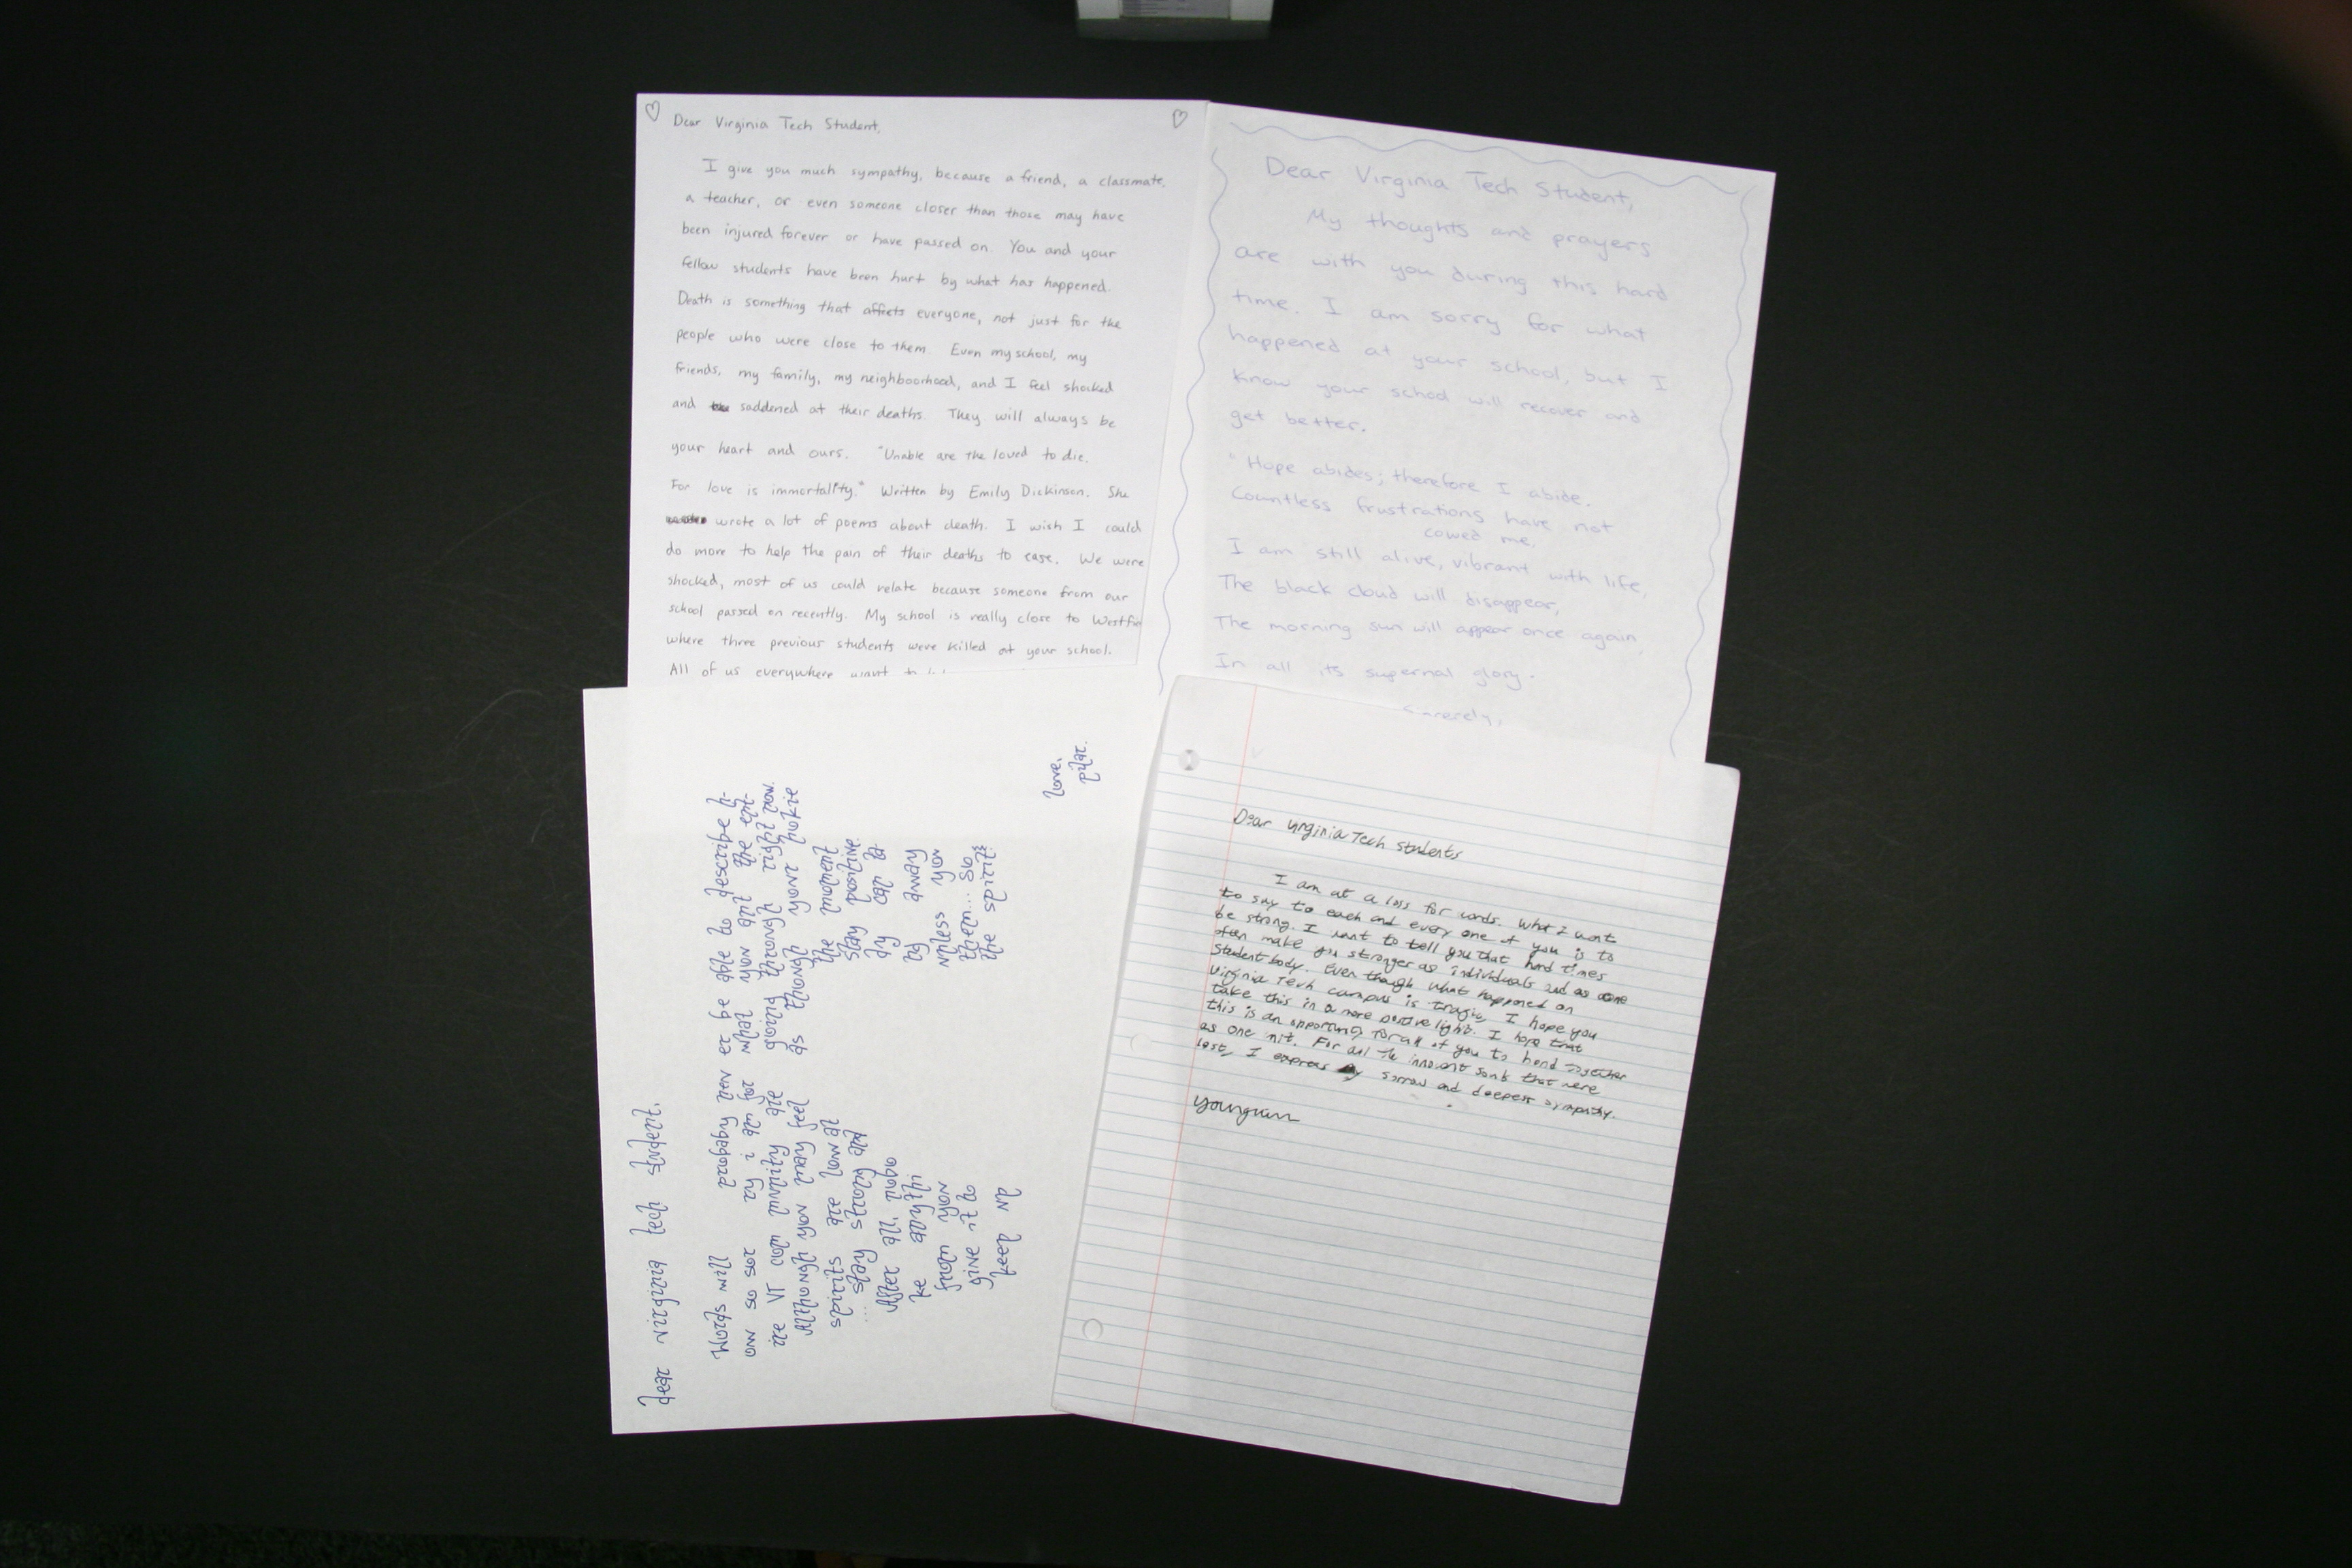 Dear Virginia Tech Student,
I give you much sympathy, because a friend, a classmate,
a teacher, or even someone closer than those may have
been injured forever or have passed on. You and your
fellow students have been hurt by what has happened.
Death is something that affects everyone, not just for the
people who were close to them. Even my school, my
friends, my family, my neighboorhood, and I feel shocked
and saddened at their deaths. They will always be
your heart and ours. "Unable are the loved to die.
For love is immortality." Written by Emily Dickinson. She
wrote a lot of poems about death. I wish I could
do more to help the pain of their deaths to ease. We were
shocked, most of us could relate because someone from our
school passed on recently. My school is really close to
where three previous students were killed at your school.
All of us everywhere want
Dear Virginia Tech Student,
My thoughts and prayers
are with you during this hard
time. I am sorry for what
happened at your school, but I
know your school will recover and
get better.
"Hope abides; therefore I abide.
Countless frustrations have not
cowed me.
I am still alive, vibrant with life,
The black cloud will disappear,
The morning sun will appear once again,
In all its supernal glory.
Sincerely,
dear virginia tech student,
Words will probably nev er be able to describe h-
ow so sor ry i am for what you ant the ent-
ire VT com munity are going through right now.
Although you may feel as though your hokie
spirits are low at the moment
... stay strong and stay positive.
After all, nobo dy can ta
ke anythi ng away
from you unless you
give it to them... so
keep up the spirit!
love,
pilar.
Dear Virginia Tech students
I am at a loss for words. What I want
to say to each and every one of you is to
be strong. I want to tell you that hard times
often make you stronger as individuals and as one
student body. Even though what happened on
Virginia Tech campus is tragic, I hope you
take this in a more positive light. I hope that
this is an opportunity for all of you to bond together
as one nit. For all the innocent souls that were
lost, I express my sorrow and deepest sympathy.